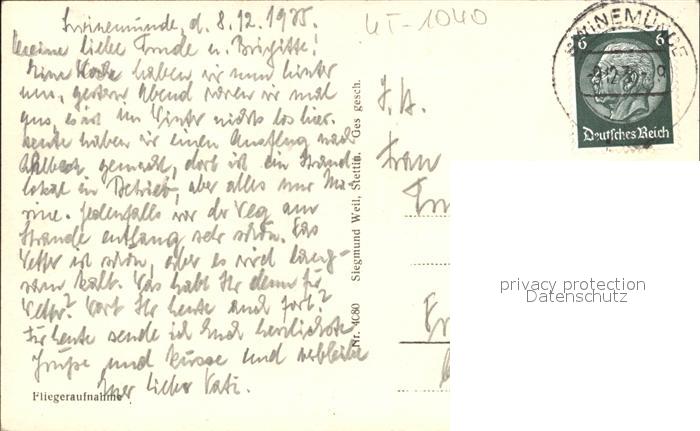 Swinemünde, d. 8.12.1935
Meine liebe Trude u. Brigitte!
Eine Woche haben wir nun hinter
uns, gestern Abend waren wir mal
aus, es ist im Winter nichts los hier.
heute haben wir einen Ausflug nach
Ahlbeck gemacht, dort ist ein Strand-
lokal in Betrieb, aber alles nur Ma-
rine. Jedenfalls war der Weg am
Strande entlang sehr schön. Das
Wetter ist schön, aber es wird lang-
sam kalt. Was habt Ihr denn für
Wetter? Wart Ihr heute auch fort?
Für heute sende ich Euch herzlichste
Grüße und Küsse und verbleibe
Euer lieber Vati.
Fliegeraufnahme
Nr. 4080 Siegmund Weil, Stettin. Ges gesch.
UT-1040
SWINEMÜNDE
6 6
Deutsches Reich
Frau
privacy protection
Datenschutz